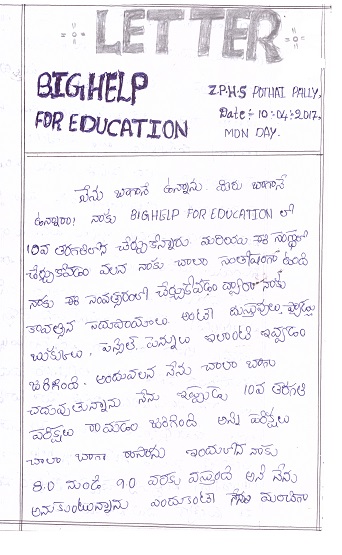 LETTER
BIGHELP
FOR EDUCATION
Z.P.H.S POTHAI PALLY,
Date :- 10-04-2017,
MON DAY.
నేను బాగానే ఉన్నాను. మీరు బాగానే
ఉన్నారా! నాకు BIGHELP FOR EDUCATION లో
10వ తరగతిలో చేర్చుకున్నారు మరియు ఈ సంస్థలో
చేర్చుకోవడం వలన నాకు చాలా సంతోషంగా ఉంది
నాకు ఈ సంవత్సరంలో చేర్చుకోవడం ద్వారా నాకు
కావల్సిన సదుపాయాలు అంటే దుస్తువులు,
బుక్కులు, పెన్సిల్ పెన్నులు ఇలాంటి ఇవ్వడం
జరిగింది. అందువలన నేను చాలా బాగా
చదువుతున్నాను నేను ఇప్పుడు 10వ తరగతి
పరీక్షలు రాయడం జరిగింది అన్ని పరీక్షలు
చాలా బాగా రాసాను ఇందులో నాకు
8.0 నుండి 9.0 వరకు వస్తుంది అని నేను
అనుకుంటున్నాను ఎందుకంటే నేను మంచిగా